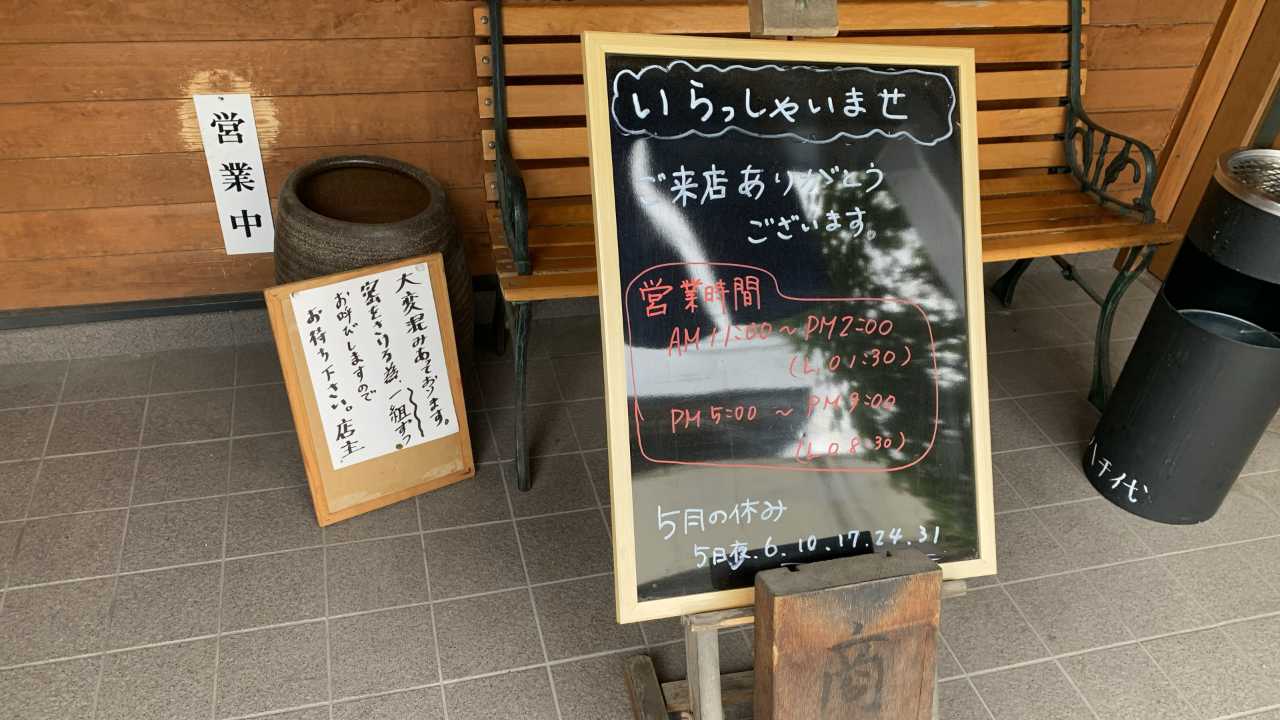 営業中
大変混みあております。
密をさける為、一組ずつ
お呼びしますので
お待ち下さい。店主
いらっしゃいませ
ご来店ありがとう
ございます。
営業時間
AM 11:00 ~ PM 2:00
(L.O 1:30)
PM 5:00 ~ PM 9:00
(L.O 8:30)
5月の休み
5日夜.6.10.17.24.31
商
千代